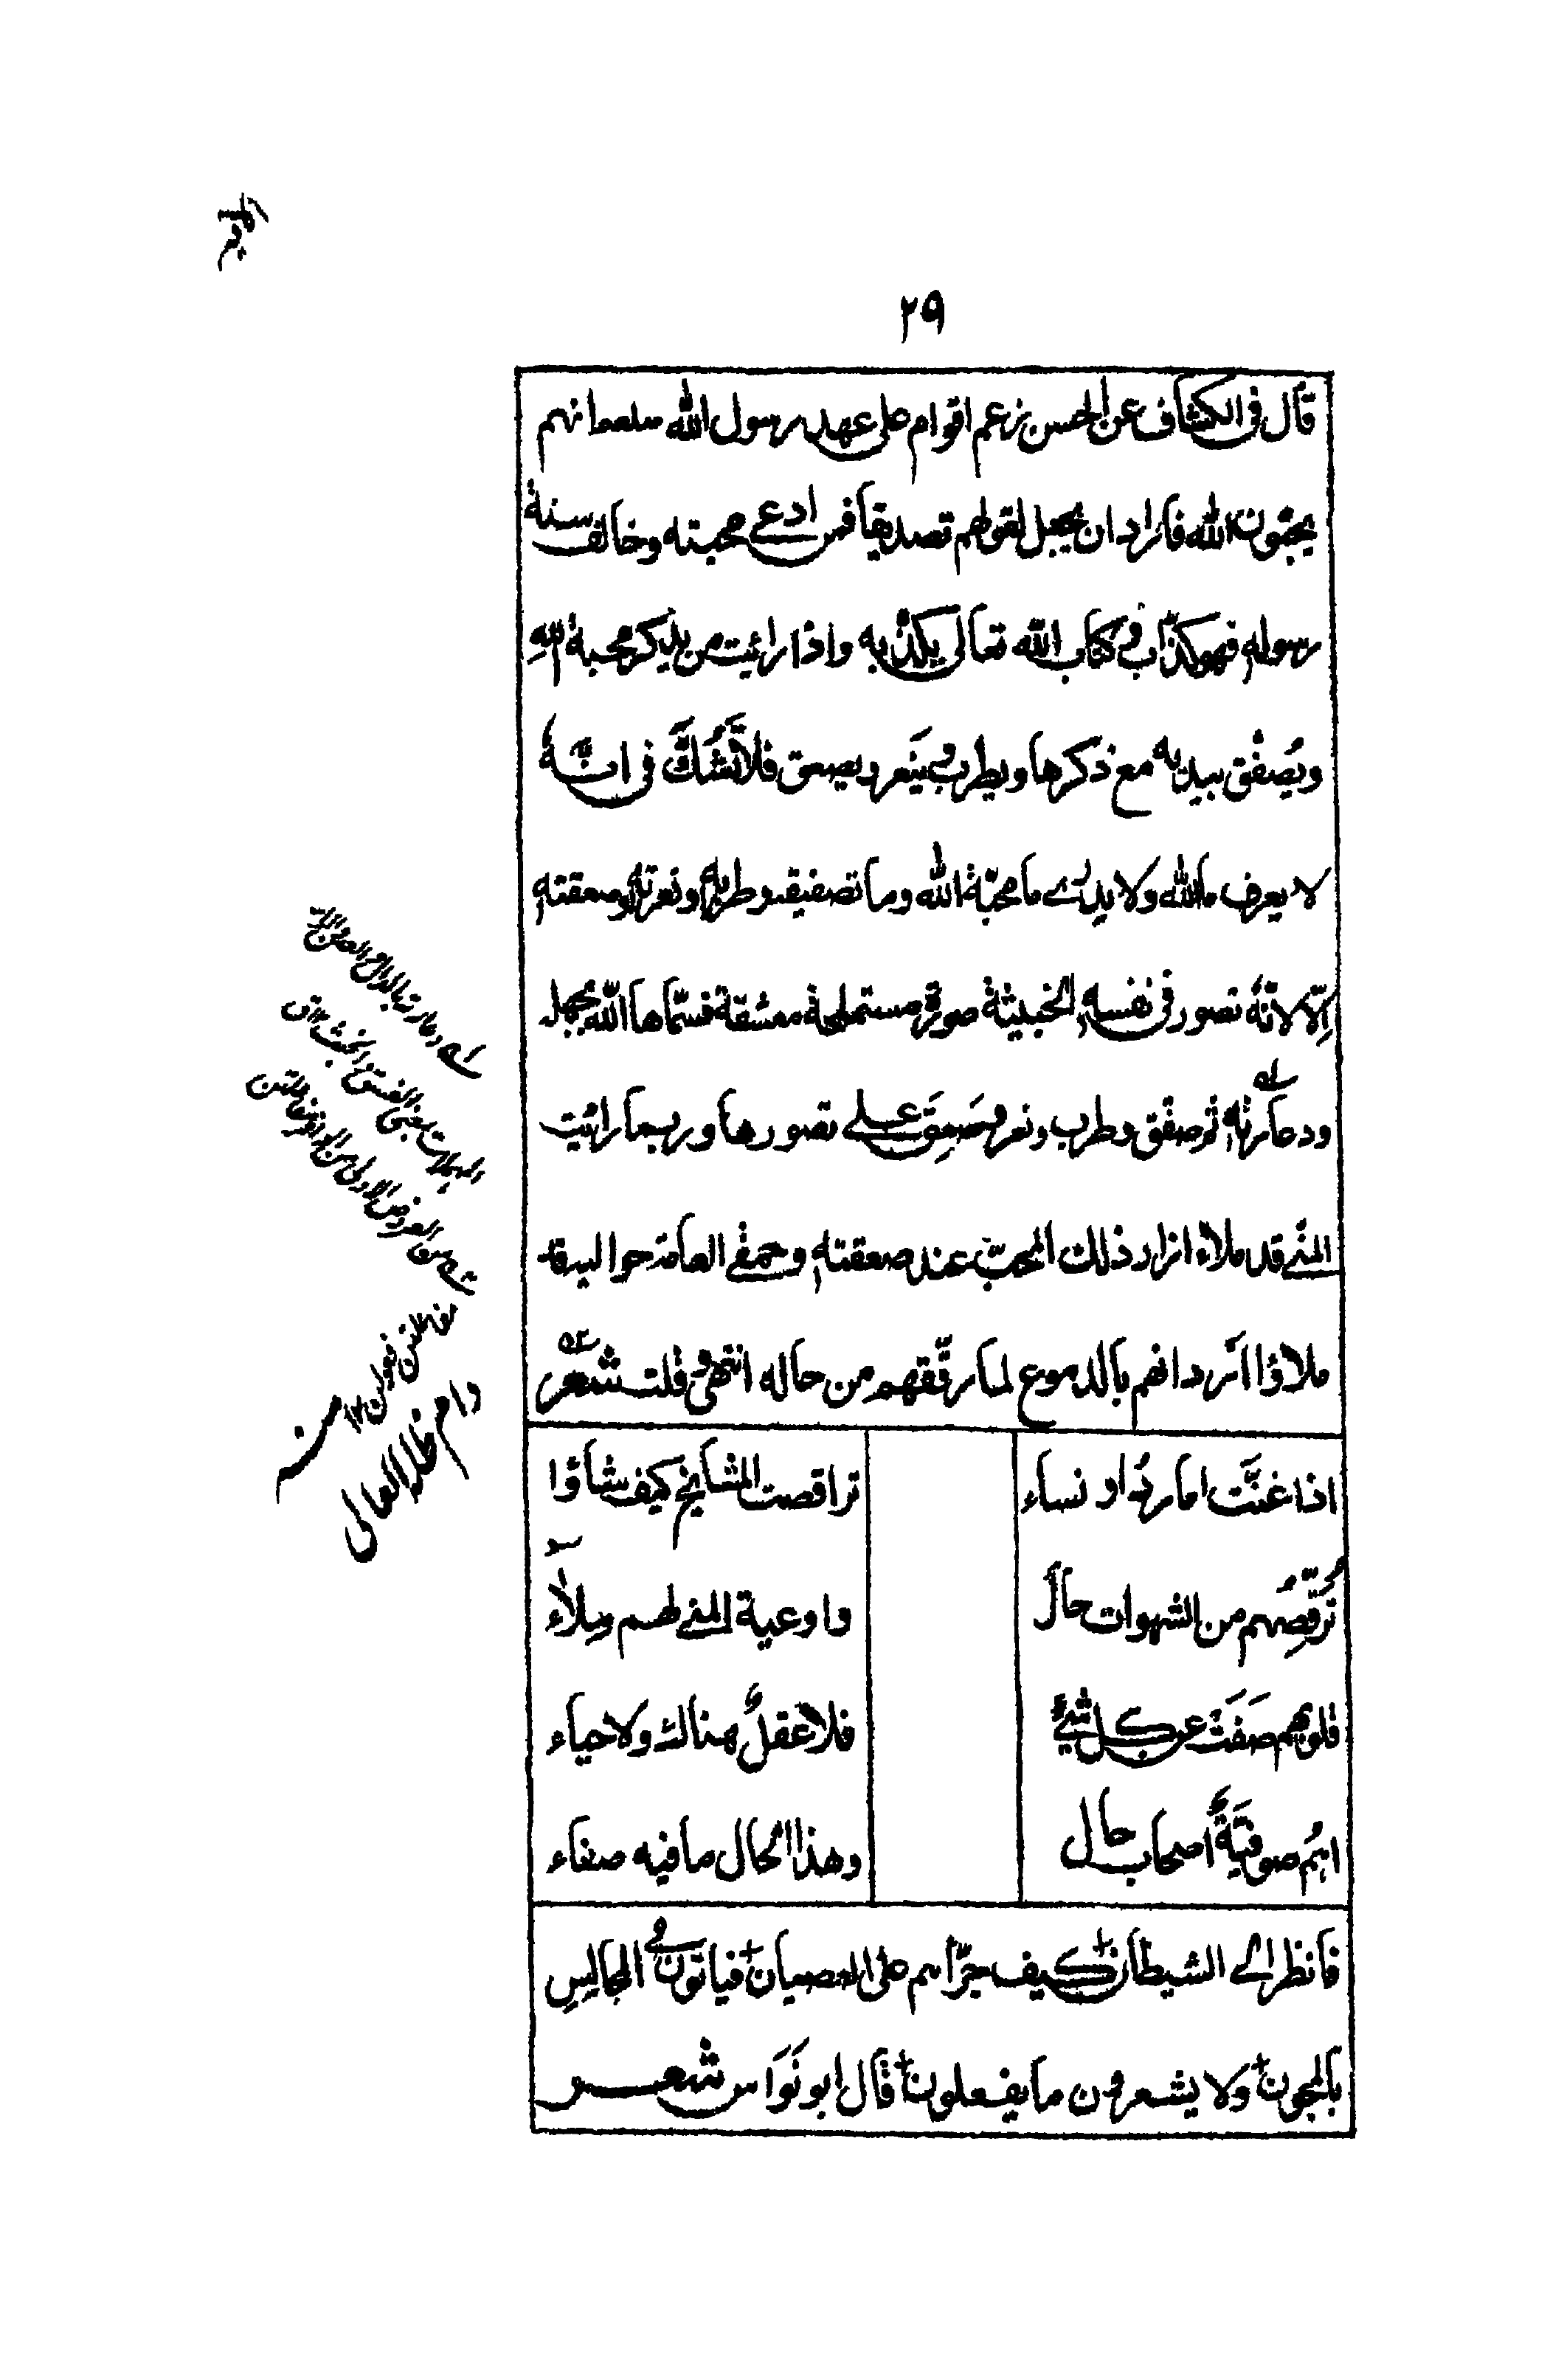 ٢٩
قال فى الكشاف عن الحسن زعم اقوام على عهد رسول الله صلعم انهم
يحبّون الله فاراد ان يجعل لقولهم تصديقا فمن ادعى محبته وخالف سنة
رسوله فهو كذّاب وكتاب الله تعالى يكذّبه واذا رائيت من يذكر محبة الله
ويُصفّق بيديه مع ذكرها ويطرب وينعر ويصعق فلا تشُكَّ فى انه
لا يعرف ما الله ولا يدرے ما محبّة الله وما تصفيقه وطربه ونعرته وصعقته
اِلّا لانّه تصور فى نفسه الخبيثة صورة مستملحة معشقة فسمّاها الله بجهله
ودعارته ثم صفّق وطرب ونعر وصَعِقَ على تصورها وربما رائيت
المنى قد ملأ ازار ذلك المحبّ عند صعقته وحمقى العامة حواليه قد
ملاؤا اردانهم بالدموع لما رقّقهم من حاله انتهى وقلت شعر
اذا غنّت امارد او نساء
تراقصت المشايخ كيف شاؤا
تُرقّصُهم من الشهوات حال
واوعية المنى لهم مِلاء
قلوبهم صَفَت عن كل شئ
فلا عقلٌ هنالك ولا حياء
اهُم صوفيّةٌ اصحاب حال
وهذا الحال ما فيه صفاء
فانظر الى الشيطان كيف جرّاهم على العصيان فياتون فى المجالس
بالمجون ولا يشعرون ما يفعلون قال ابو نَوَاس شعر
دام ظله العالى